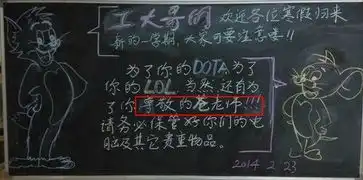 工大哥的 欢迎各位寒假归来
新的一学期，大家可要注意喽!!
为了你的DOTA，为了
你的LOL，当然，还有为
了你尊敬的苍老师!!!
请务必保管好你们的电
脑及其它贵重物品。
2014 2 23